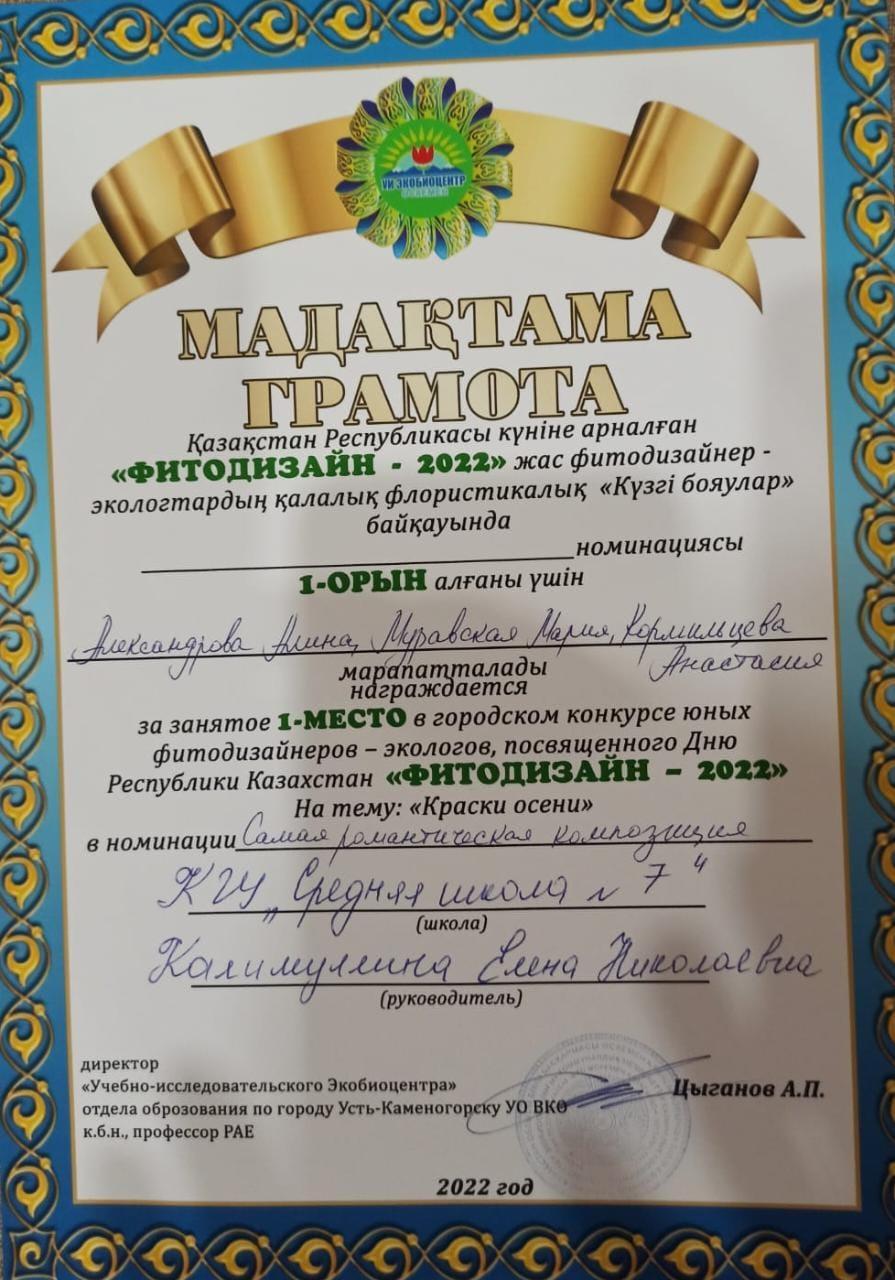 УИ ЭКОБИОЦЕНТР
МАДАҚТАМА
ГРАМОТА
Қазақстан Республикасы күніне арналған
«ФИТОДИЗАЙН - 2022» жас фитодизайнер -
экологтардың қалалық флористикалық «Күзгі бояулар»
байқауында
номинациясы
1-ОРЫН алғаны үшін
Александрова Алина, Муравская Мария, Кормильцева
Анастасия
марапатталады
награждается
за занятое 1-МЕСТО в городском конкурсе юных
фитодизайнеров – экологов, посвященного Дню
Республики Казахстан «ФИТОДИЗАЙН – 2022»
На тему: «Краски осени»
в номинации Самая романтическая композиция
КГУ „Средняя школа № 7"
(школа)
Калимуллина Елена Николаевна
(руководитель)
директор
«Учебно-исследовательского Экобиоцентра»
отдела оброзования по городу Усть-Каменогорску УО ВКО
к.б.н., профессор РАЕ
Цыганов А.П.
2022 год